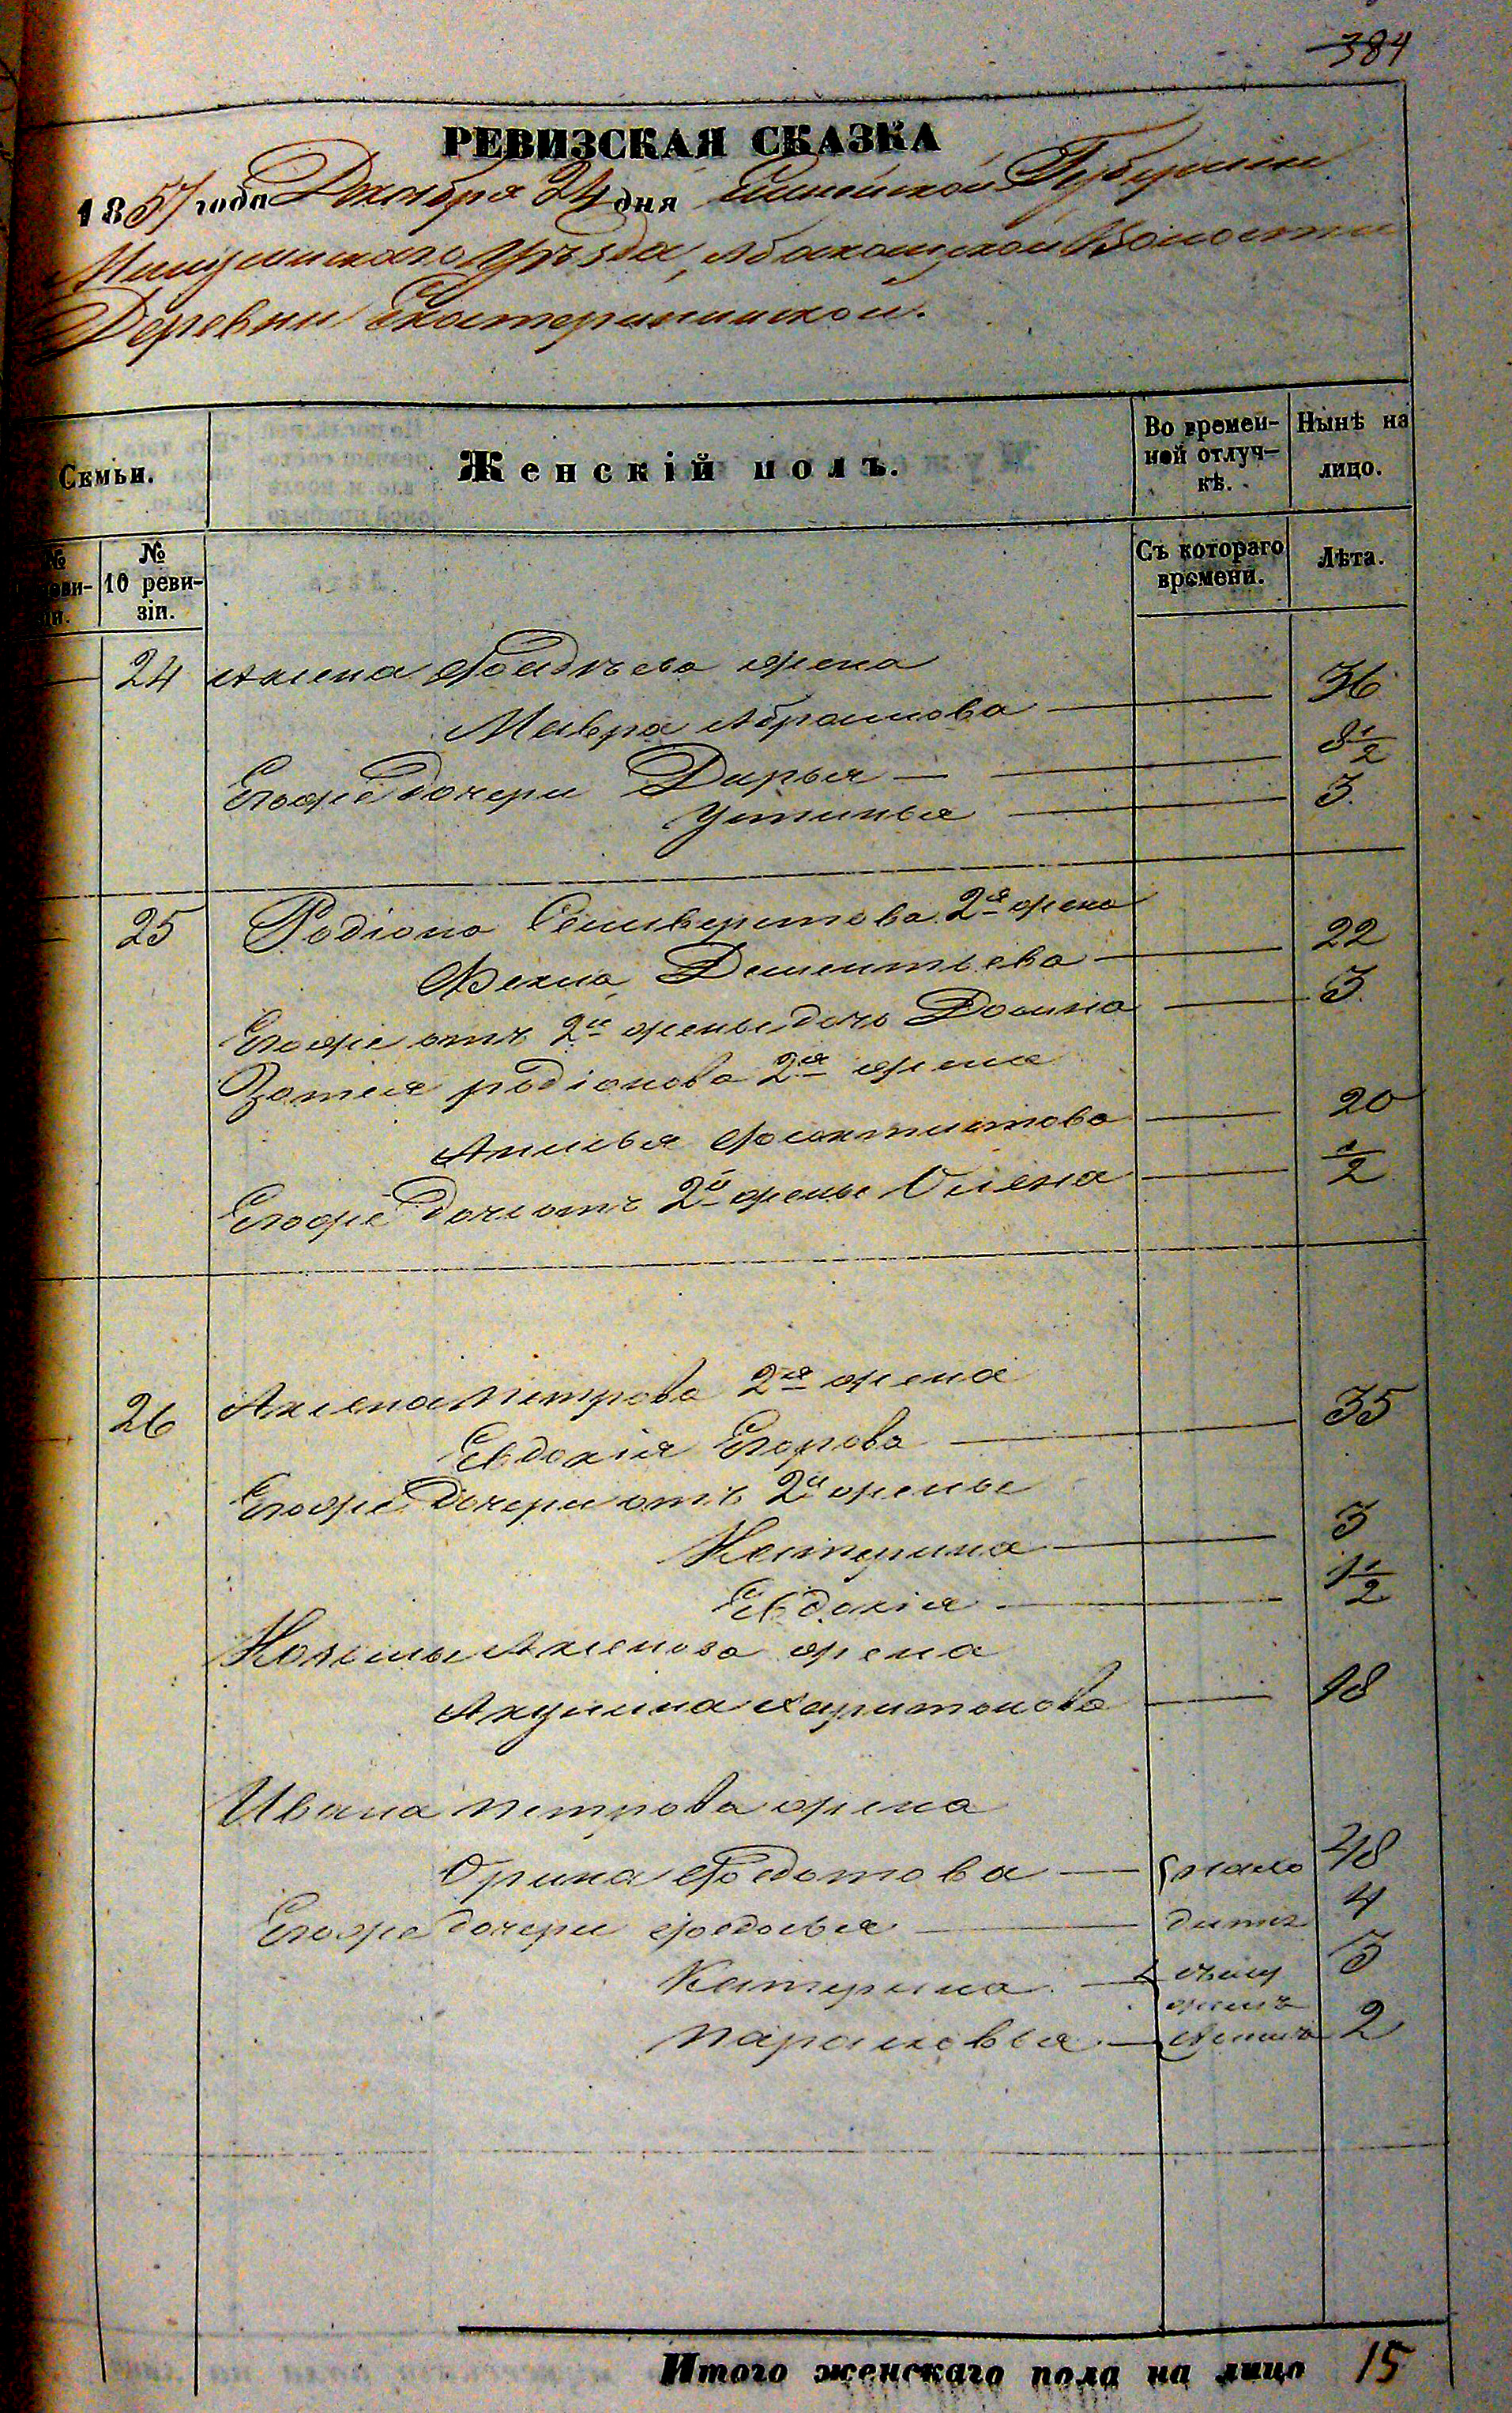 384
РЕВИЗСКАЯ СКАЗКА
1857 года Декабря 24 дня Енисейской Губернии
Минусинскаго Уезда, Абаканской Волости
Деревни Екатерининской.
Семьи.
Женскій полъ.
Во времен-
ной отлуч-
кѣ.
Нынѣ на
лицо.
№
реви-
зіи.
№
10 реви-
зіи.
Съ котораго
времени.
Лѣта.
24 Аксена Фадѣева жена
Мавра Абрамова — 36
Егоже дочери Дарья — 8½
Устинья — 3.
25 Родіона Селиверстова 2я жена
Фекла Дементьева — 22
Егоже отъ 2й жены дочь Домна — 3.
Зотея родіонова 2я жена
Анисья Феоктистова — 20
Егоже дочь отъ 2й жены Олена — ½
26 Аксена Петрова 2я жена
Евдокія Егорова — 35
Егоже дочери отъ 2й жены
Катерина — 3
Евдокія — 1½
Козьмы Аксенова жена
Акулина Харитонова — 18
Ивана Петрова жена
Орина Федотова — 48
Егоже дочери Федосья — 4
Катерина — 3
Парасковья — 2
Итого женскаго пола на лицо 15